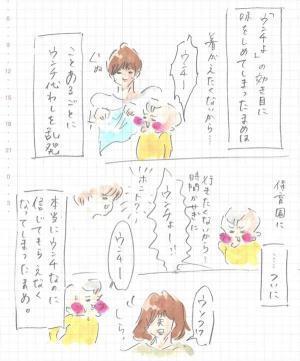 「ウンチよ」の効き目に
味をしめてしまったまめは
着がえたくないから→
ウンチー
ぐぬ
ことあるごとに
ウンチ代わしを乱発
保育園に
行きたくないから→
時間かせぎに
ウンチよー!!
ホントー?
……ついに
ウンチー
ウンチ
しら〜
本当にウンチなのに
信じてもらえなく
なってしまったまめ。